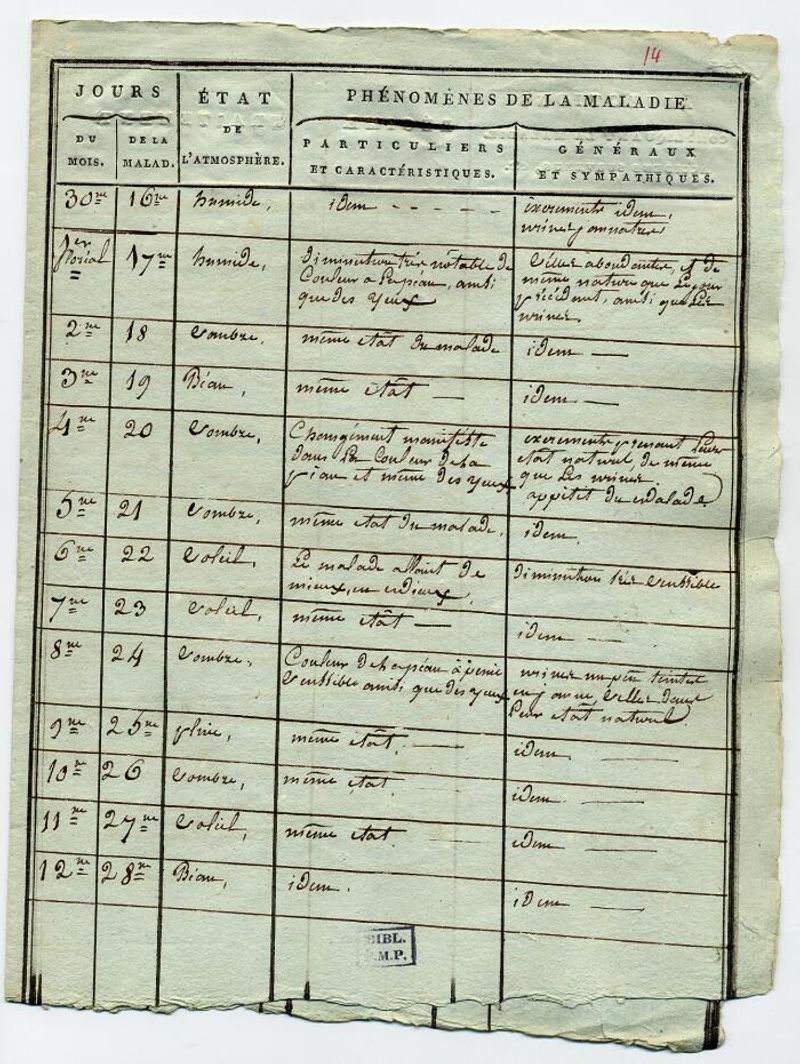 14
JOURS
ÉTAT
PHÉNOMÈNES DE LA MALADIE
DU
MOIS.
DE LA
MALAD.
DE
L'ATMOSPHÈRE.
PARTICULIERS
ET CARACTÉRISTIQUES.
GÉNÉRAUX
ET SYMPATHIQUES.
30me 16me humide, idem - - - - - excrements idem,
urines jaunatres
1er
florial 17me humide, Diminution très nôtable de
Couleur a La peau, ainsi
que des yeux
Celles abondantes, et de
même nature que Le jour
précédent, ainsi que Les
urines.
2me 18 Sombre, même etat du malade idem —
3me 19 Béau, même etât — idem —
4me 20 Sombre, Changément manifèste
dans La Couleur de La
piau et même des yeux
excrements prenant Leur
etât naturel, de même
que Les urines.
appétit du malade.
5me 21 Sombre, même etat du malade. idem.
6me 22 Soleil, Le malade allait de
mieux, en mieux.
Diminution très Senssible
7me 23 Soleil, même etât — idem —
8me 24 Sombre, Couleur de La péau à peine
Senssible ainsi que des yeux
urines un peu teintes
en jaune, Selles dans
Leur etât naturel
9me 25me pluie, même etât. — idem —
10me 26 Sombre, même etat — idem —
11me 27me Soleil, même etat — idem —
12me 28me Béau, idem. idem —
BIBL.
.M.P.